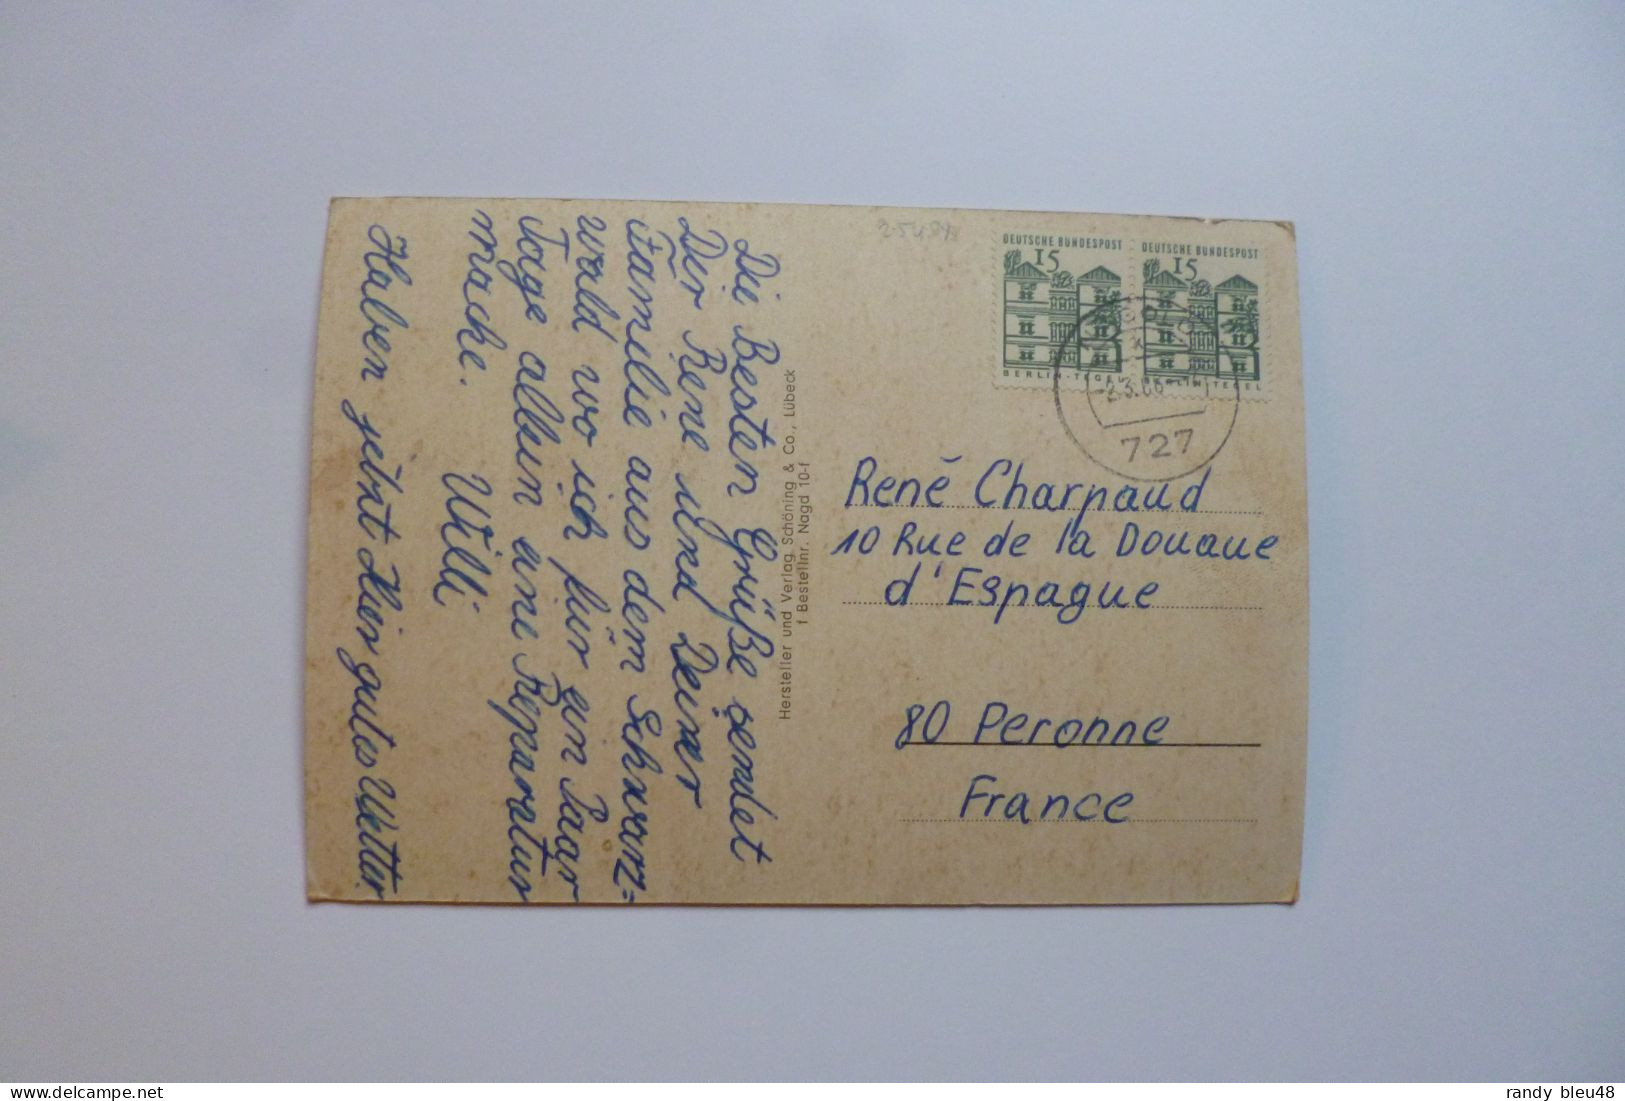 Die Besten Grüße sendet
Dir Rene und Deiner
Familie aus dem Schwarz=
wald wo ich für ein Paar
Tage allein eine Reparatur
mache.
Willi
Haben jetzt Hier gutes Wetter.
Hersteller und Verlag Schöning & Co., Lübeck
f Bestellnr. Nagd 10-f
DEUTSCHE BUNDESPOST
15
BERLIN-TEGEL
DEUTSCHE BUNDESPOST
15
BERLIN-TEGEL
-2.3.66
727
René Charpaud
10 Rue de la Douaue
d'Espague
80 Peronne
France
randy bleu48